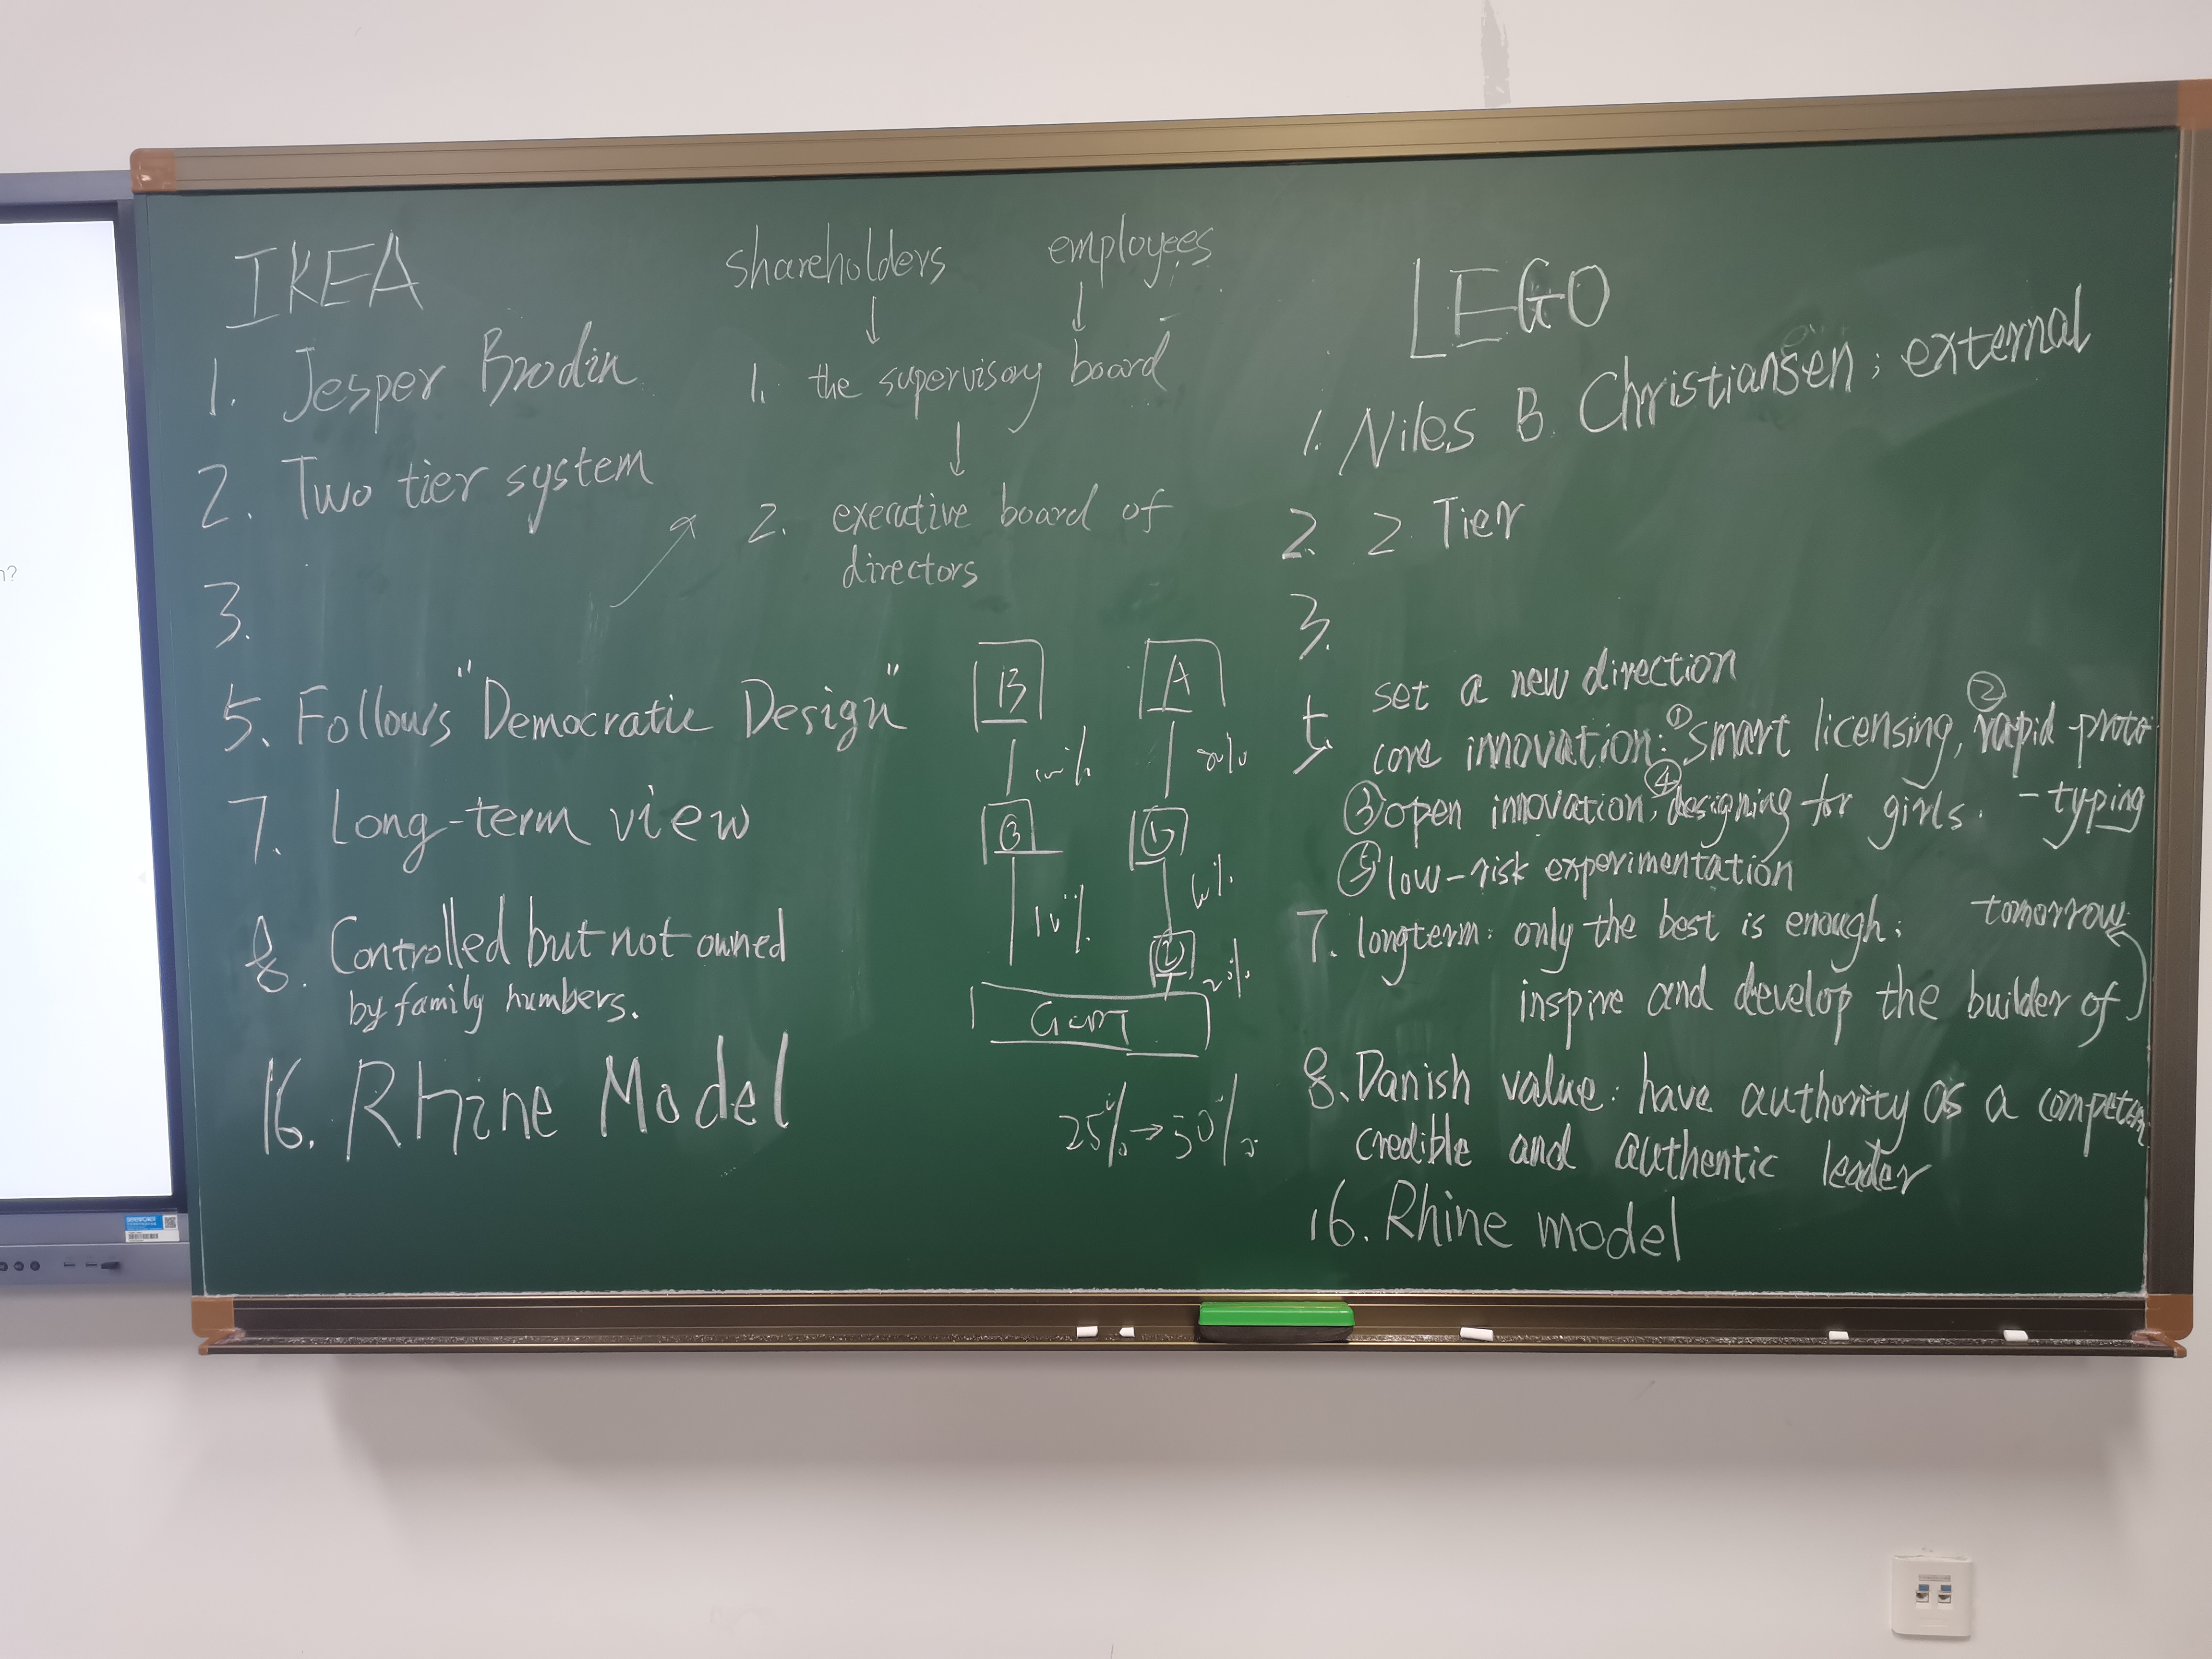 IKEA
1. Jesper Brodin
2. Two tier system
3.
5. Follows "Democratic Design"
7. Long-term view
8. Controlled but not owned
by family numbers.
16. Rhine Model
shareholders employees
1. the supervisory board
2. executive board of
directors
B A
10%
25% → 50%
LEGO
1. Niles B. Christiansen; external
2. 2 Tier
3.
set a new direction
5. core innovation: ① smart licensing, ② rapid proto
③ open innovation, ④ designing for girls. -typing
⑤ low-risk experimentation
7. longterm: only the best is enough; tomorrow
inspire and develop the builder of
8. Danish value: have authority as a
credible and authentic leader
16. Rhine model